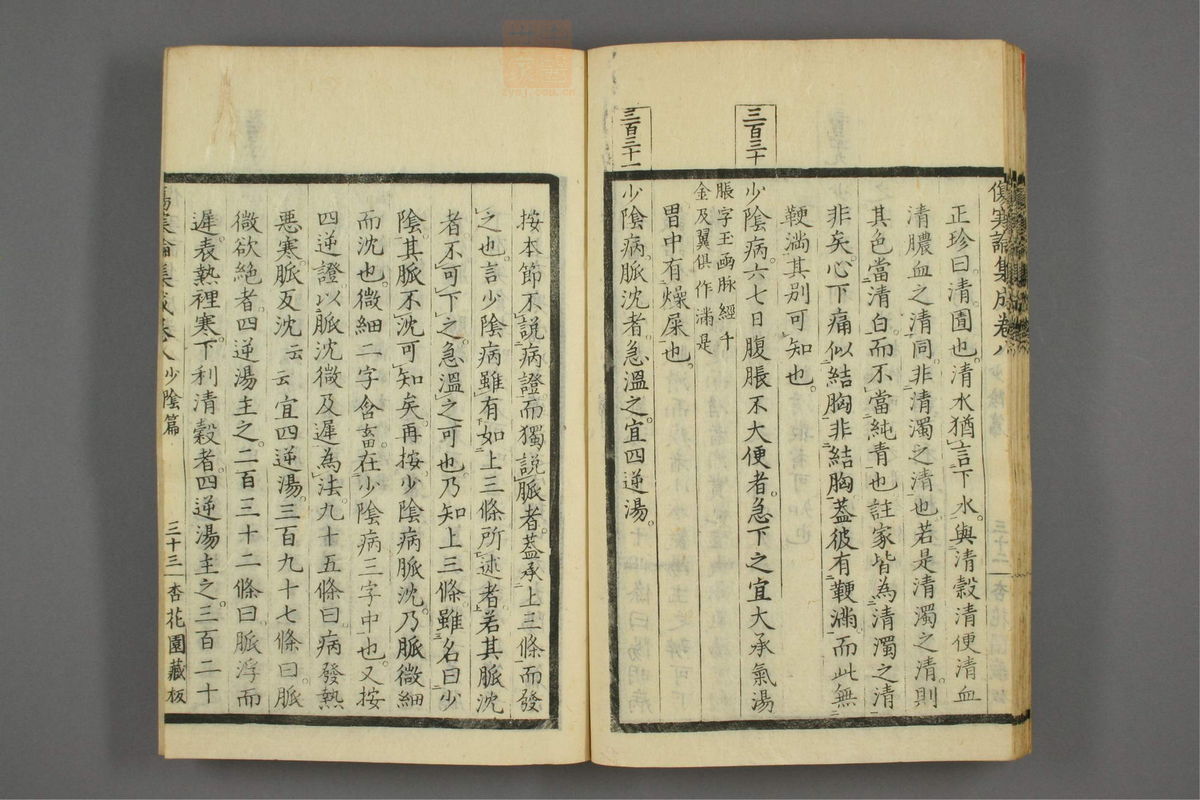 傷寒論集成卷八
正珍曰。清圊也。清水猶言下水。與清穀清便清血
清膿血之清同。非清濁之清也。若是清濁之清。則
其色當清白。而不當純青也。註家皆為清濁之清
非矣。心下痛似結胸非結胸。蓋彼有鞕滿。而此無
鞕滿。其別可知也。
三百三十
少陰病。六七日腹脹不大便者。急下之宜大承氣湯
脹字王函脉經千
金及翼俱作滿是
胃中有燥屎也。
三百三十一
少陰病。脈沈者。急溫之。宜四逆湯。
按本節不說病證。而獨說脈者。蓋承上三條而發
之也。言少陰病雖有如上三條所述者。若其脈沈
者。不可下之。急溫之可也。乃知上三條。雖名曰少
陰。其脈不沈可知矣。再按少陰病脈沈。乃脈微細
而沈也。微細二字含畜在少陰病三字中也。又按
四逆證。以脈沈微及遲為法。九十五條曰。病發熱
惡寒。脈反沈云云宜四逆湯。三百九十七條曰。脈
微欲絕者。四逆湯主之。二百三十二條曰。脈浮而
遲。表熱裡寒。下利清穀者。四逆湯主之。三百二十
傷寒論集成卷八 少陰篇 三十三 杏花園藏板